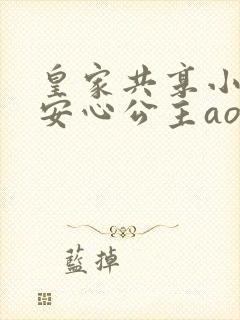 皇家共享小
安心公主ao
藍掉